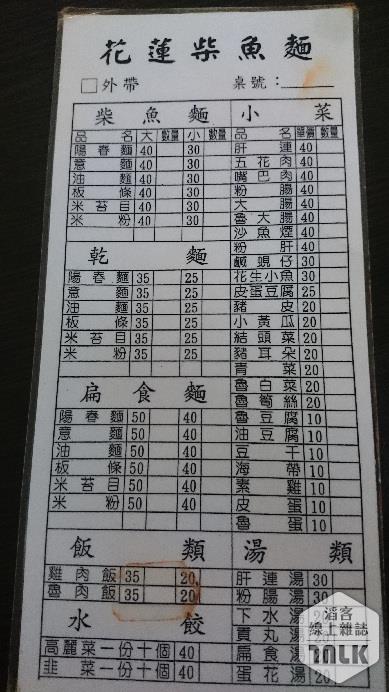 花蓮柴魚麵
□外帶 桌號:
柴魚麵
品名 大 數量 小 數量
陽春麵 40 30
意麵 40 30
油麵 40 30
板條 40 30
米苔目 40 30
米粉 40 30
乾麵
陽春麵 35 25
意麵 35 25
油麵 35 25
板條 35 25
米苔目 35 25
米粉 35 25
扁食麵
陽春麵 50 40
意麵 50 40
油麵 50 40
板條 50 40
米苔目 50 40
米粉 50 40
飯類
雞肉飯 35 20
魯肉飯 35 20
水餃
高麗菜一份十個 40
韭菜一份十個 40
小菜
品名 單價 數量
肝連 40
五花肉 40
嘴巴肉 40
粉腸 40
大腸 40
魯大腸 40
沙魚煙 40
粉肝 40
鹹蜆仔 30
花生小魚 30
皮蛋豆腐 25
豬皮 20
小黃瓜 20
結頭菜 20
豬耳朵 20
青菜 20
魯白菜 20
魯筍絲 20
魯豆腐 10
油豆腐 10
豆干 10
海帶 10
素雞 10
皮蛋 10
魯蛋 10
湯類
肝連湯 30
粉腸湯 30
下水湯
貢丸湯
扁食湯
蛋花湯 20
滔客
線上雜誌
TALK